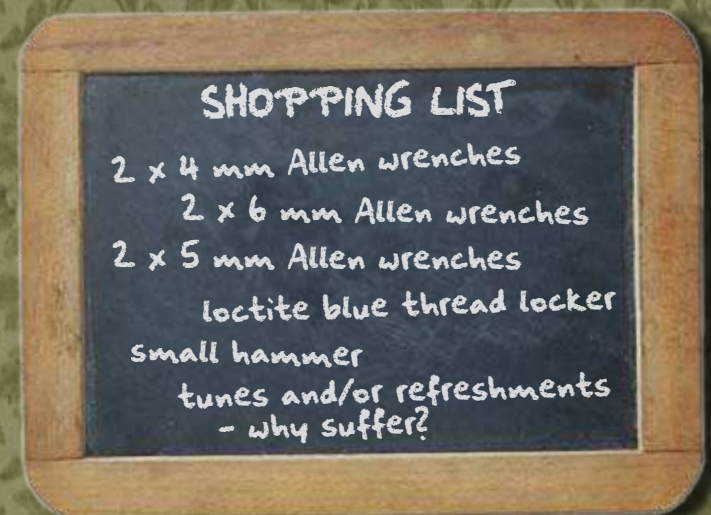 SHOPPING LIST
2 x 4 mm Allen wrenches
2 x 6 mm Allen wrenches
2 x 5 mm Allen wrenches
loctite blue thread locker
small hammer
tunes and/or refreshments
- why suffer?